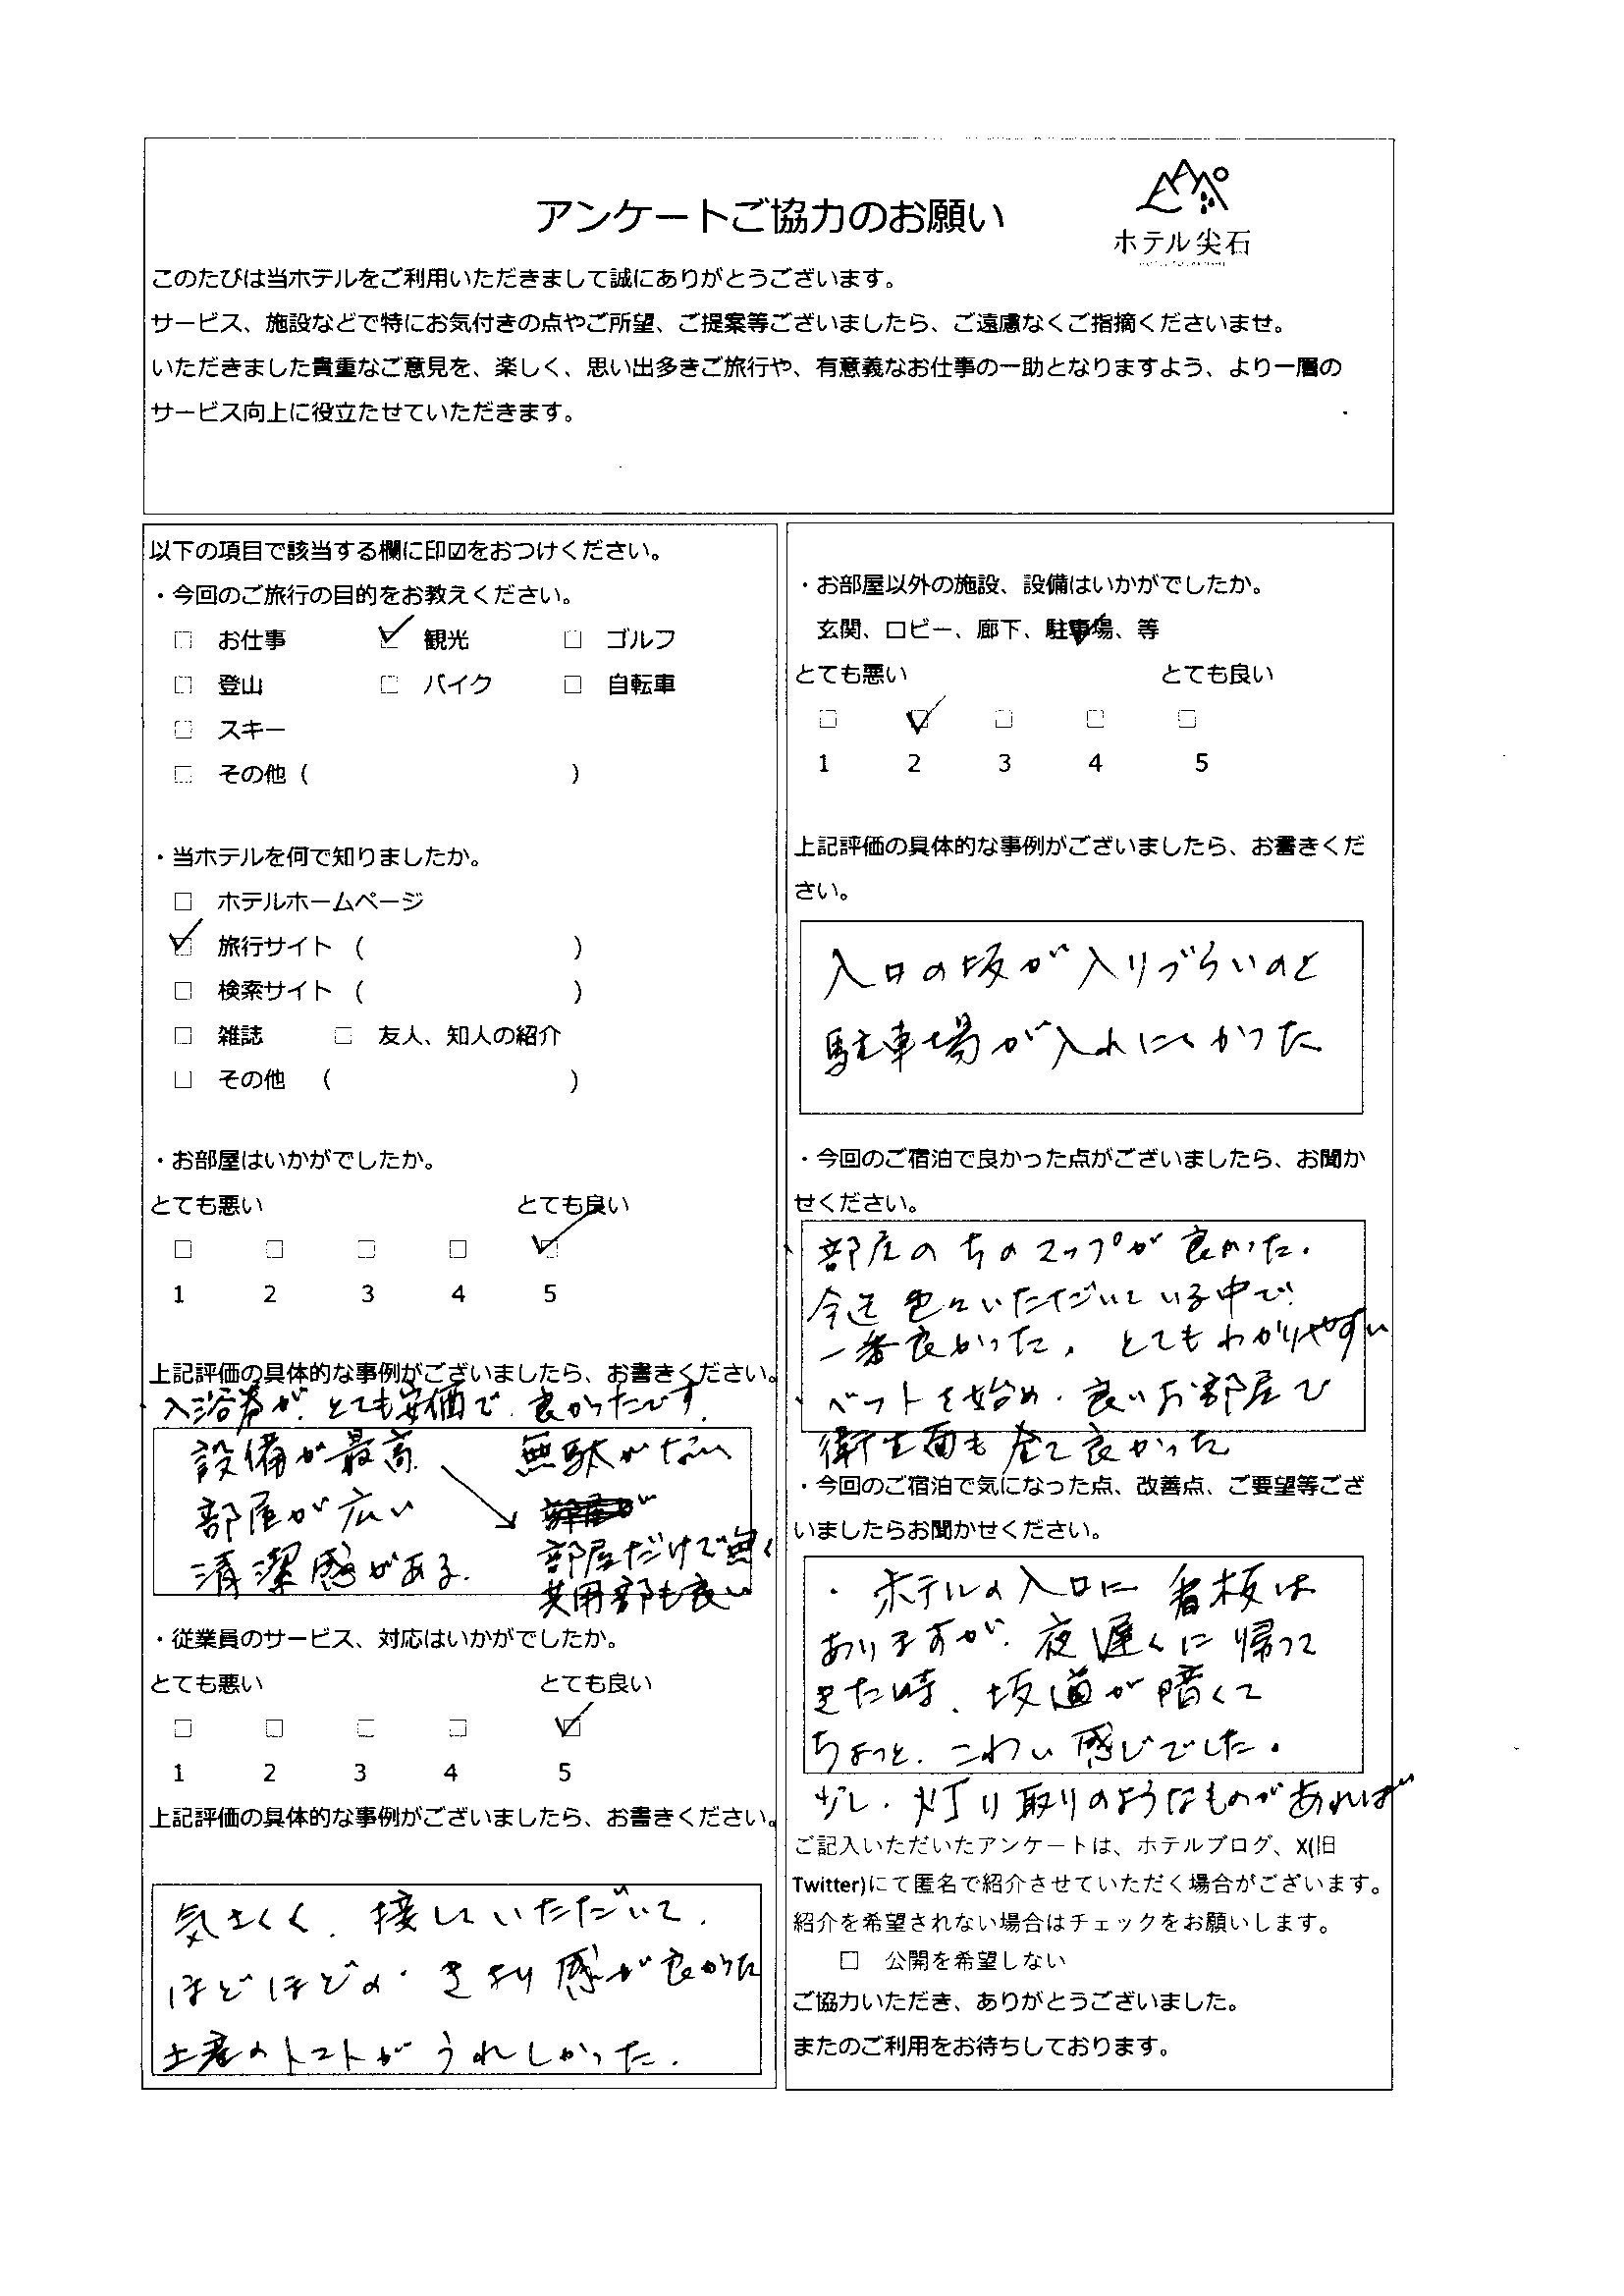 アンケートご協力のお願い
ホテル尖石
このたびは当ホテルをご利用いただきまして誠にありがとうございます。
サービス、施設などで特にお気付きの点やご所望、ご提案等ございましたら、ご遠慮なくご指摘くださいませ。
いただきました貴重なご意見を、楽しく、思い出多きご旅行や、有意義なお仕事の一助となりますよう、より一層の
サービス向上に役立たせていただきます。
以下の項目で該当する欄に印☑をおつけください。
・今回のご旅行の目的をお教えください。
□ お仕事 ☑ 観光 □ ゴルフ
□ 登山 □ バイク □ 自転車
□ スキー
□ その他 ( )
・当ホテルを何で知りましたか。
□ ホテルホームページ
☑ 旅行サイト ( )
□ 検索サイト ( )
□ 雑誌 □ 友人、知人の紹介
□ その他 ( )
・お部屋はいかがでしたか。
とても悪い とても良い
□ □ □ □ ☑
1 2 3 4 5
上記評価の具体的な事例がございましたら、お書きください。
入浴券が、とても安価で、良かったです。
設備が最高 無駄がない
部屋が広い
清潔感がある。 部屋だけで無く
共用部も良い
・従業員のサービス、対応はいかがでしたか。
とても悪い とても良い
□ □ □ □ ☑
1 2 3 4 5
上記評価の具体的な事例がございましたら、お書きください。
気さくく、接していただいて、
ほどほどの、きより感が良かった
土産のトマトがうれしかった。
・お部屋以外の施設、設備はいかがでしたか。
玄関、ロビー、廊下、駐車場、等
とても悪い とても良い
□ ☑ □ □ □
1 2 3 4 5
上記評価の具体的な事例がございましたら、お書きくだ
さい。
入口の坂が入りづらいのと
駐車場が入れにくかった
・今回のご宿泊で良かった点がございましたら、お聞か
せください。
部屋の ちのマップが良かった。
今迄色々いただいている中で
一番良かった。とてもわかりやすい
ベットを始め、良いお部屋で
衛生面も全て良かった
・今回のご宿泊で気になった点、改善点、ご要望等ござ
いましたらお聞かせください。
・ホテルの入口に看板は
ありますが、夜遅くに帰って
きた時、坂道が暗くて
ちょっと、こわい感じでした。
少し、灯り取りのようなものがあれば
ご記入いただいたアンケートは、ホテルブログ、X(旧
Twitter)にて匿名で紹介させていただく場合がございます。
紹介を希望されない場合はチェックをお願いします。
□ 公開を希望しない
ご協力いただき、ありがとうございました。
またのご利用をお待ちしております。